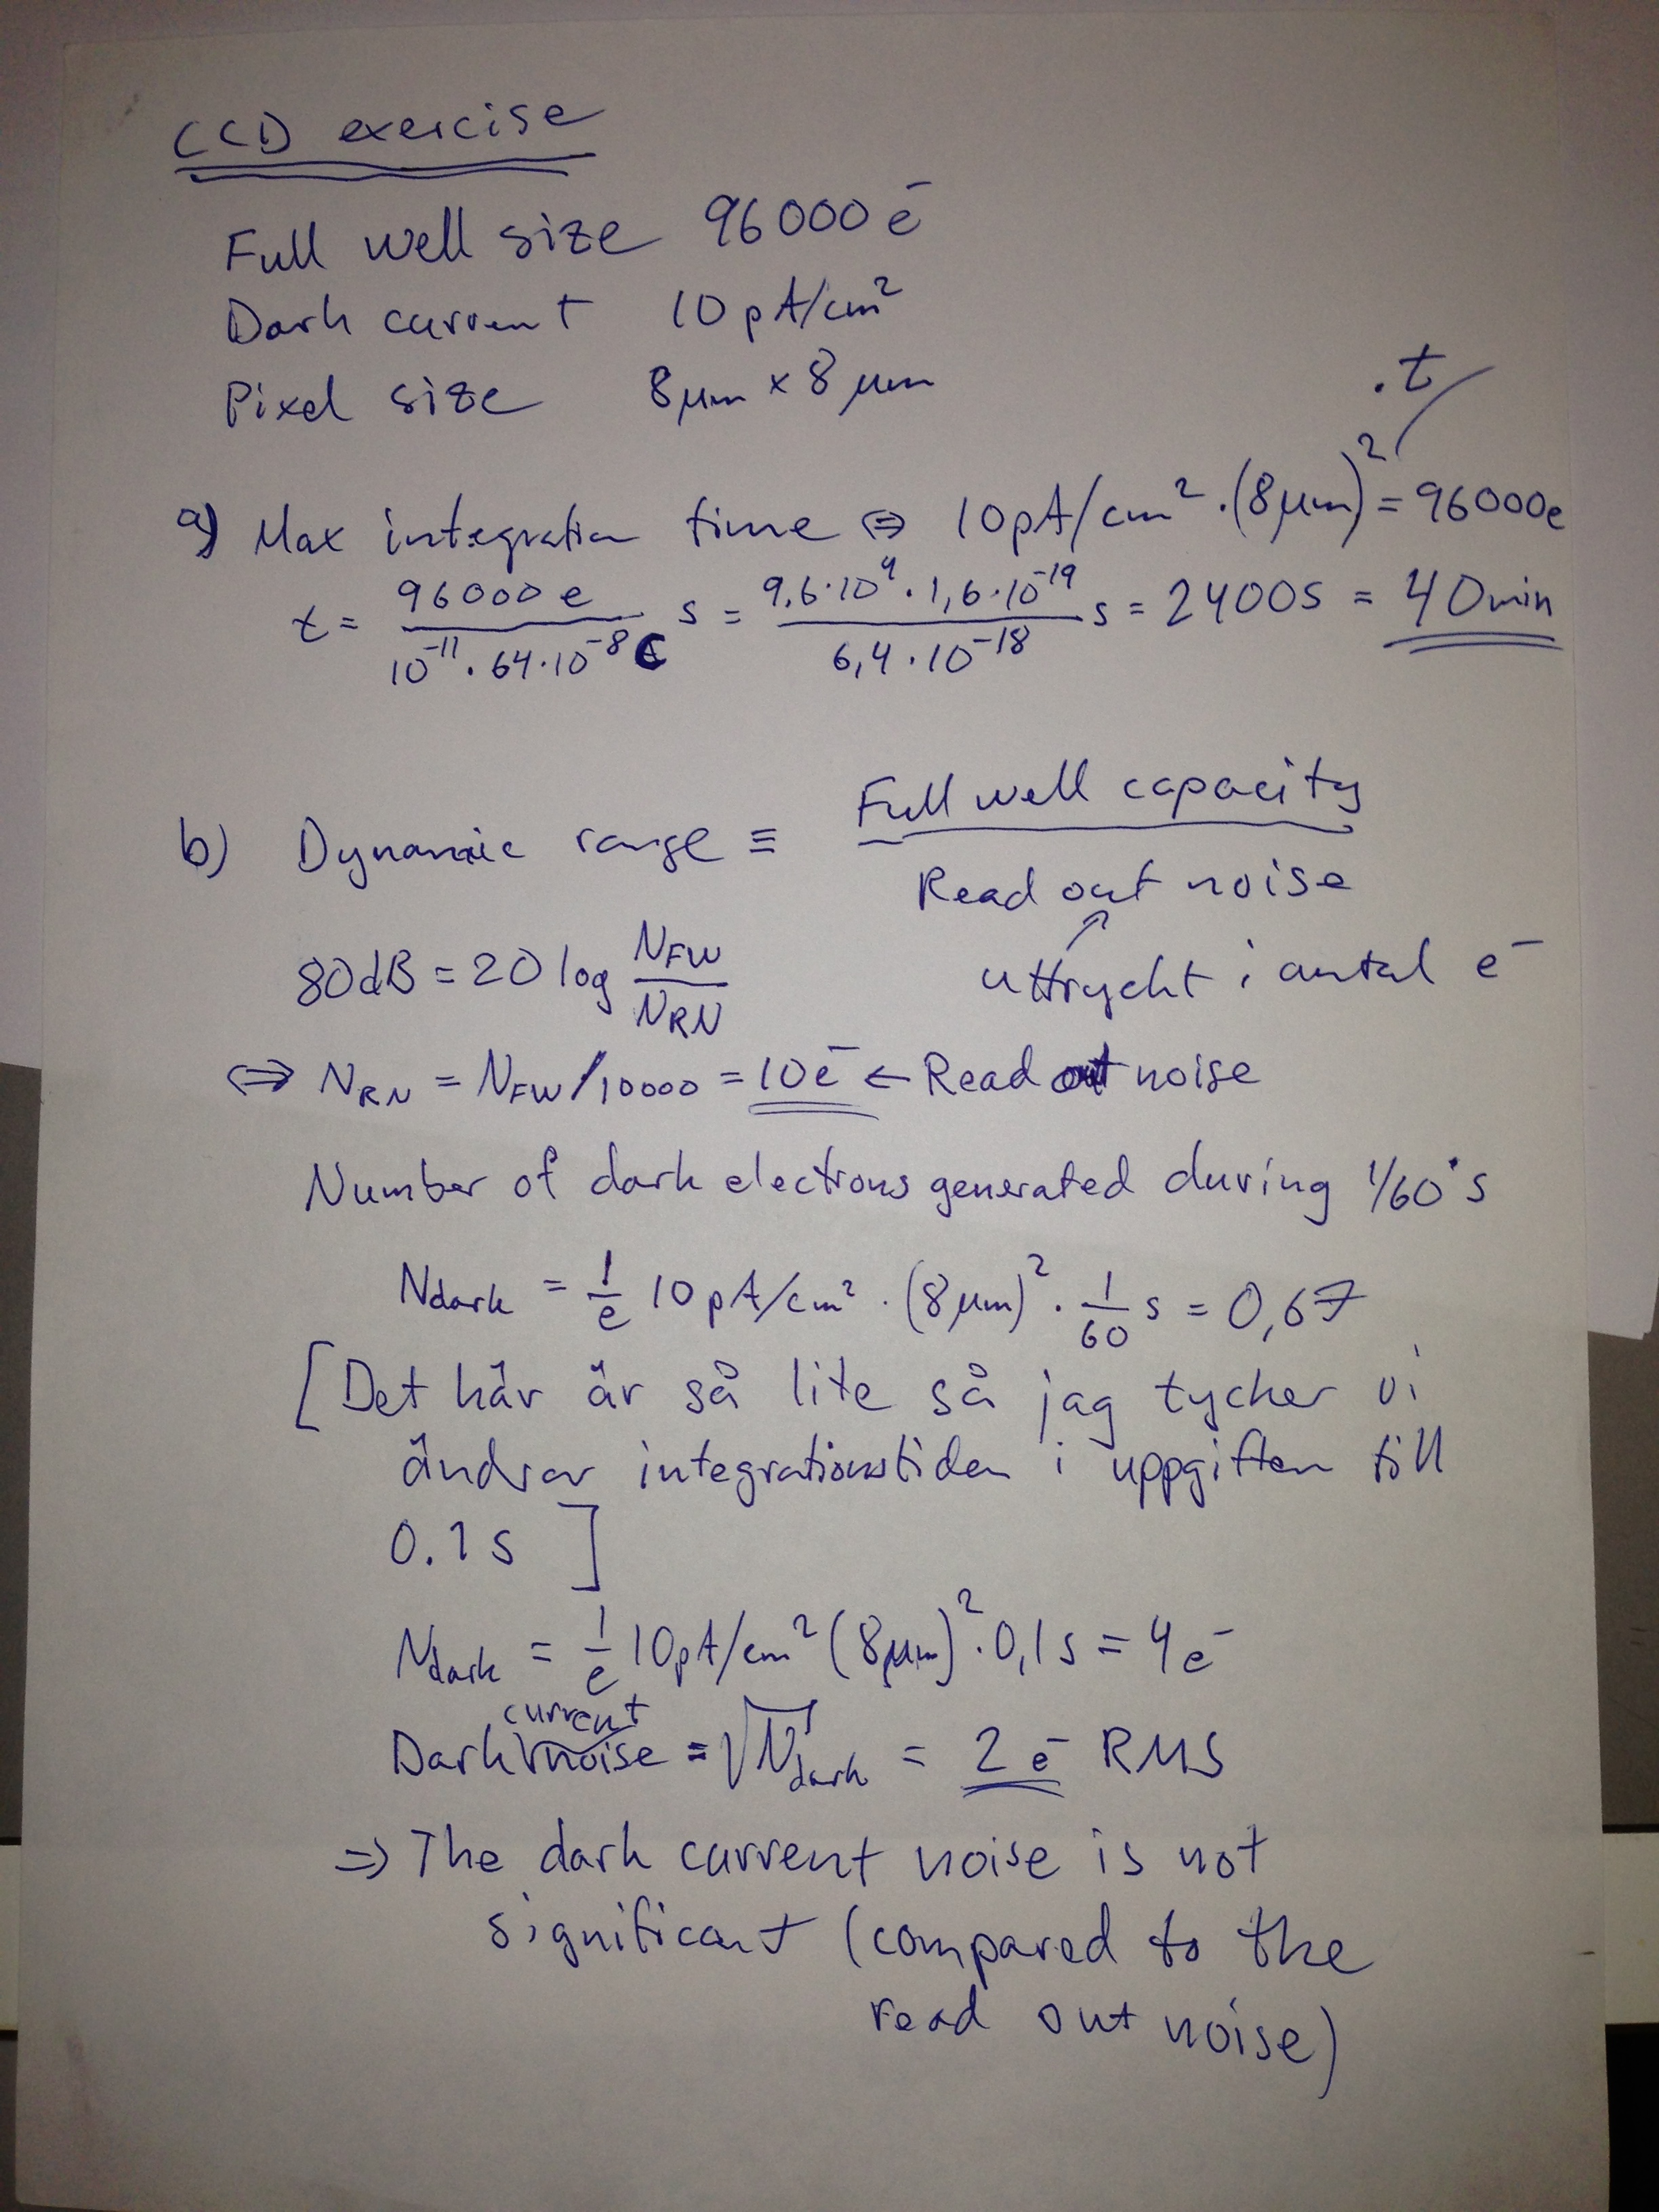 CCD exercise
Full well size 96000 e⁻
Dark current 10 pA/cm²
Pixel size 8 μm × 8 μm
a) Max integration time ⇔ 10 pA/cm² · (8 μm)² · t = 96000e
t = 96000 e / (10⁻¹¹ · 64 · 10⁻⁸ C) s = 9,6 · 10⁴ · 1,6 · 10⁻¹⁹ / (6,4 · 10⁻¹⁸) s = 2400s = 40min
b) Dynamic range ≡ Full well capacity / Read out noise
uttryckt i antal e⁻
80dB = 20 log N_FW / N_RN
⇔ N_RN = N_FW/10000 = 10e⁻ ← Read out noise
Number of dark electrons generated during 1/60 s
N_dark = 1/e 10 pA/cm² · (8 μm)² · 1/60 s = 0,67
[Det här är så lite så jag tycker vi
ändrar integrationstiden i uppgiften till
0.1 s ]
N_dark = 1/e 10pA/cm² (8μm)² · 0,1 s = 4 e⁻
Dark current noise = √N_dark = 2 e⁻ RMS
⇒ The dark current noise is not
significant (compared to the
read out noise)